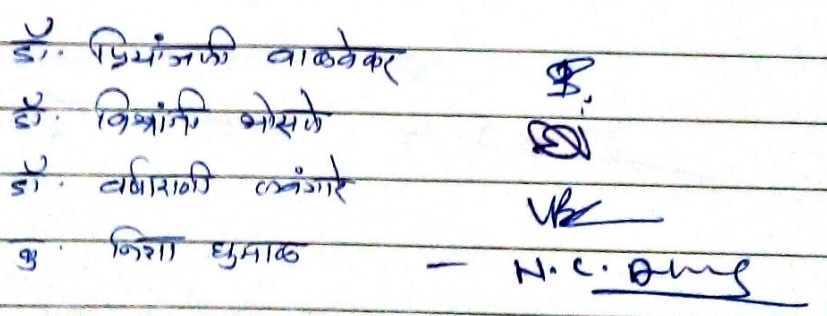 डॉ. प्रियांजली वाळवेकर
डॉ. विश्रांती भोसले
डॉ. वर्षाराणी लवंगारे
कु. निशा धुमाळ - N. C. Dhu